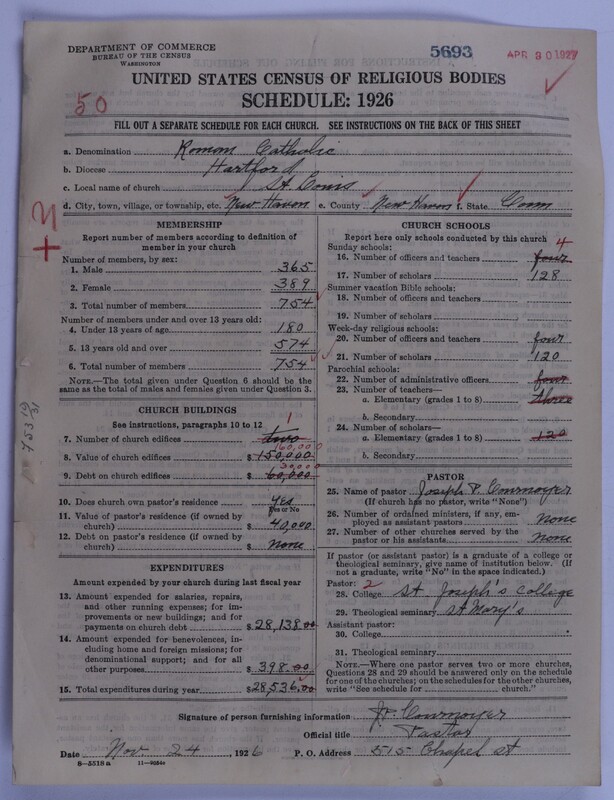 DEPARTMENT OF COMMERCE
BUREAU OF THE CENSUS
WASHINGTON
5693
APR 30 1927
50
UNITED STATES CENSUS OF RELIGIOUS BODIES
SCHEDULE: 1926
FILL OUT A SEPARATE SCHEDULE FOR EACH CHURCH. SEE INSTRUCTIONS ON THE BACK OF THIS SHEET
a. Denomination Roman Catholic
b. Diocese Hartford
c. Local name of church St. Louis
d. City, town, village, or township, etc. New Haven e. County New Haven f. State Conn
MEMBERSHIP
Report number of members according to definition of
member in your church
Number of members, by sex:
1. Male 365
2. Female 389
3. Total number of members 754
Number of members under and over 13 years old:
4. Under 13 years of age 180
5. 13 years old and over 574
6. Total number of members 754
NOTE.—The total given under Question 6 should be
the same as the total of males and females given under Question 3.
CHURCH BUILDINGS
See instructions, paragraphs 10 to 12
1
7. Number of church edifices two
8. Value of church edifices $ 150,000
9. Debt on church edifices $ 60,000
10. Does church own pastor's residence Yes
Yes or No
11. Value of pastor's residence (if owned by
church) $ 40,000
12. Debt on pastor's residence (if owned by
church) $ none
EXPENDITURES
Amount expended by your church during last fiscal year
13. Amount expended for salaries, repairs,
and other running expenses; for im-
provements or new buildings; and for
payments on church debt $ 28,138.00
14. Amount expended for benevolences,
including home and foreign missions; for
denominational support; and for all
other purposes $ 398.00
15. Total expenditures during year $ 28,536.00
CHURCH SCHOOLS
Report here only schools conducted by this church
Sunday schools:
4
16. Number of officers and teachers four
17. Number of scholars 128
Summer vacation Bible schools:
18. Number of officers and teachers
19. Number of scholars
Week-day religious schools:
20. Number of officers and teachers four
21. Number of scholars 120
Parochial schools:
22. Number of administrative officers four
23. Number of teachers—
a. Elementary (grades 1 to 8) three
b. Secondary
24. Number of scholars—
a. Elementary (grades 1 to 8) 120
b. Secondary
PASTOR
25. Name of pastor Joseph P. Cournoyer
(If church has no pastor, write "None")
26. Number of ordained ministers, if any, em-
ployed as assistant pastors None
27. Number of other churches served by the
pastor or his assistants none
If pastor (or assistant pastor) is a graduate of a college or
theological seminary, give name of institution below. (If
not a graduate, write "No" in the space indicated.)
Pastor: 2
28. College St Joseph's College
29. Theological seminary St Mary's
Assistant pastor:
30. College
31. Theological seminary
NOTE.—Where one pastor serves two or more churches,
Questions 28 and 29 should be answered only on the schedule
for one of the churches; on the schedules for the other churches,
write "See schedule for church."
Signature of person furnishing information J.P. Cournoyer
Official title Pastor
Date Nov. 24 1926 P. O. Address 515 Chapel st
8—5518 a